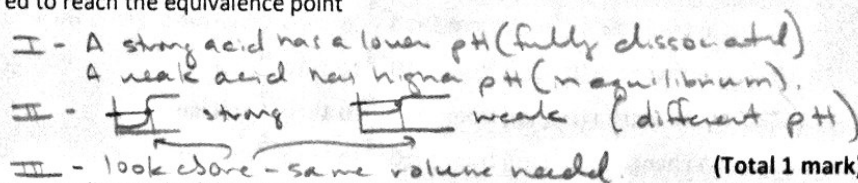 ed to reach the equivalence point
I - A strong acid has a lower pH (fully dissociated)
A weak acid has higher pH (in equilibrium).
II - strong weak (different pH)
III - look above - same volume needed. (Total 1 mark)